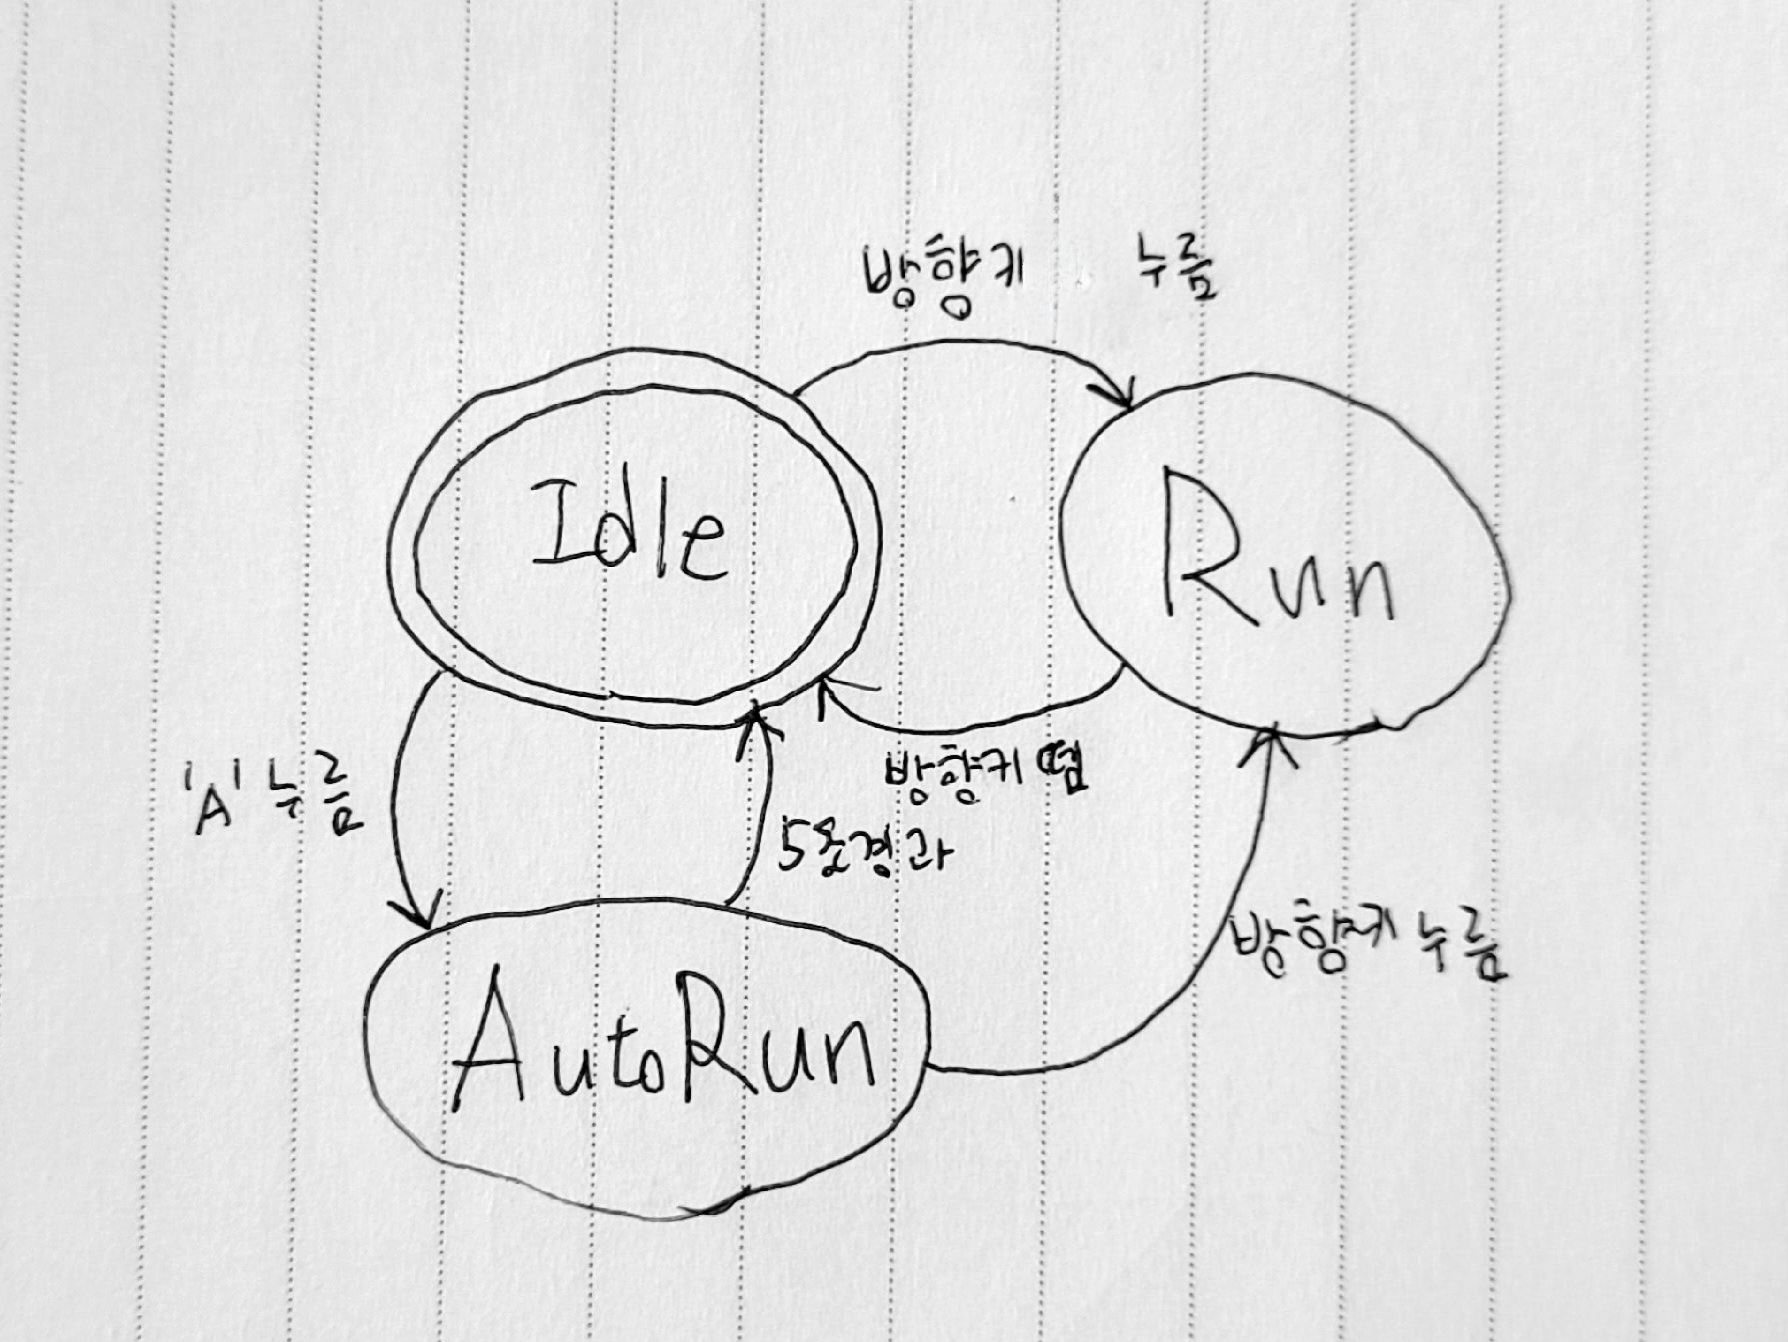 방향키 누름
Idle
Run
'A' 누름
방향키 뗌
5초경과
방향키 누름
AutoRun